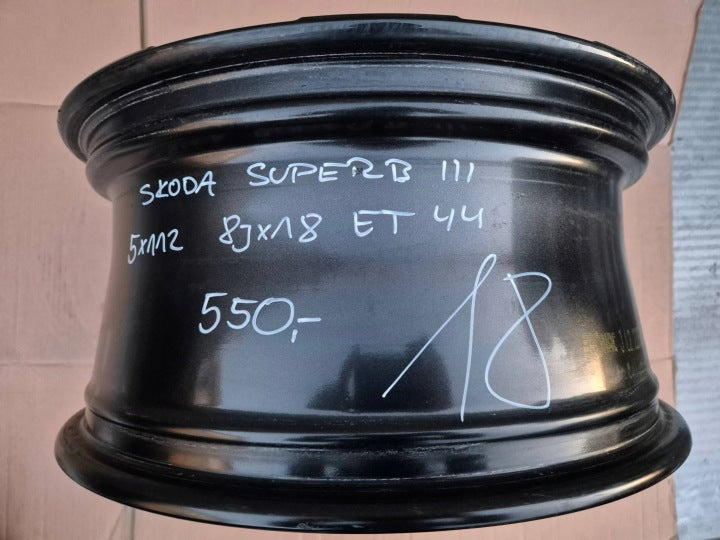 SKODA SUPERB III
5x112 8Jx18 ET 44
550,-
18